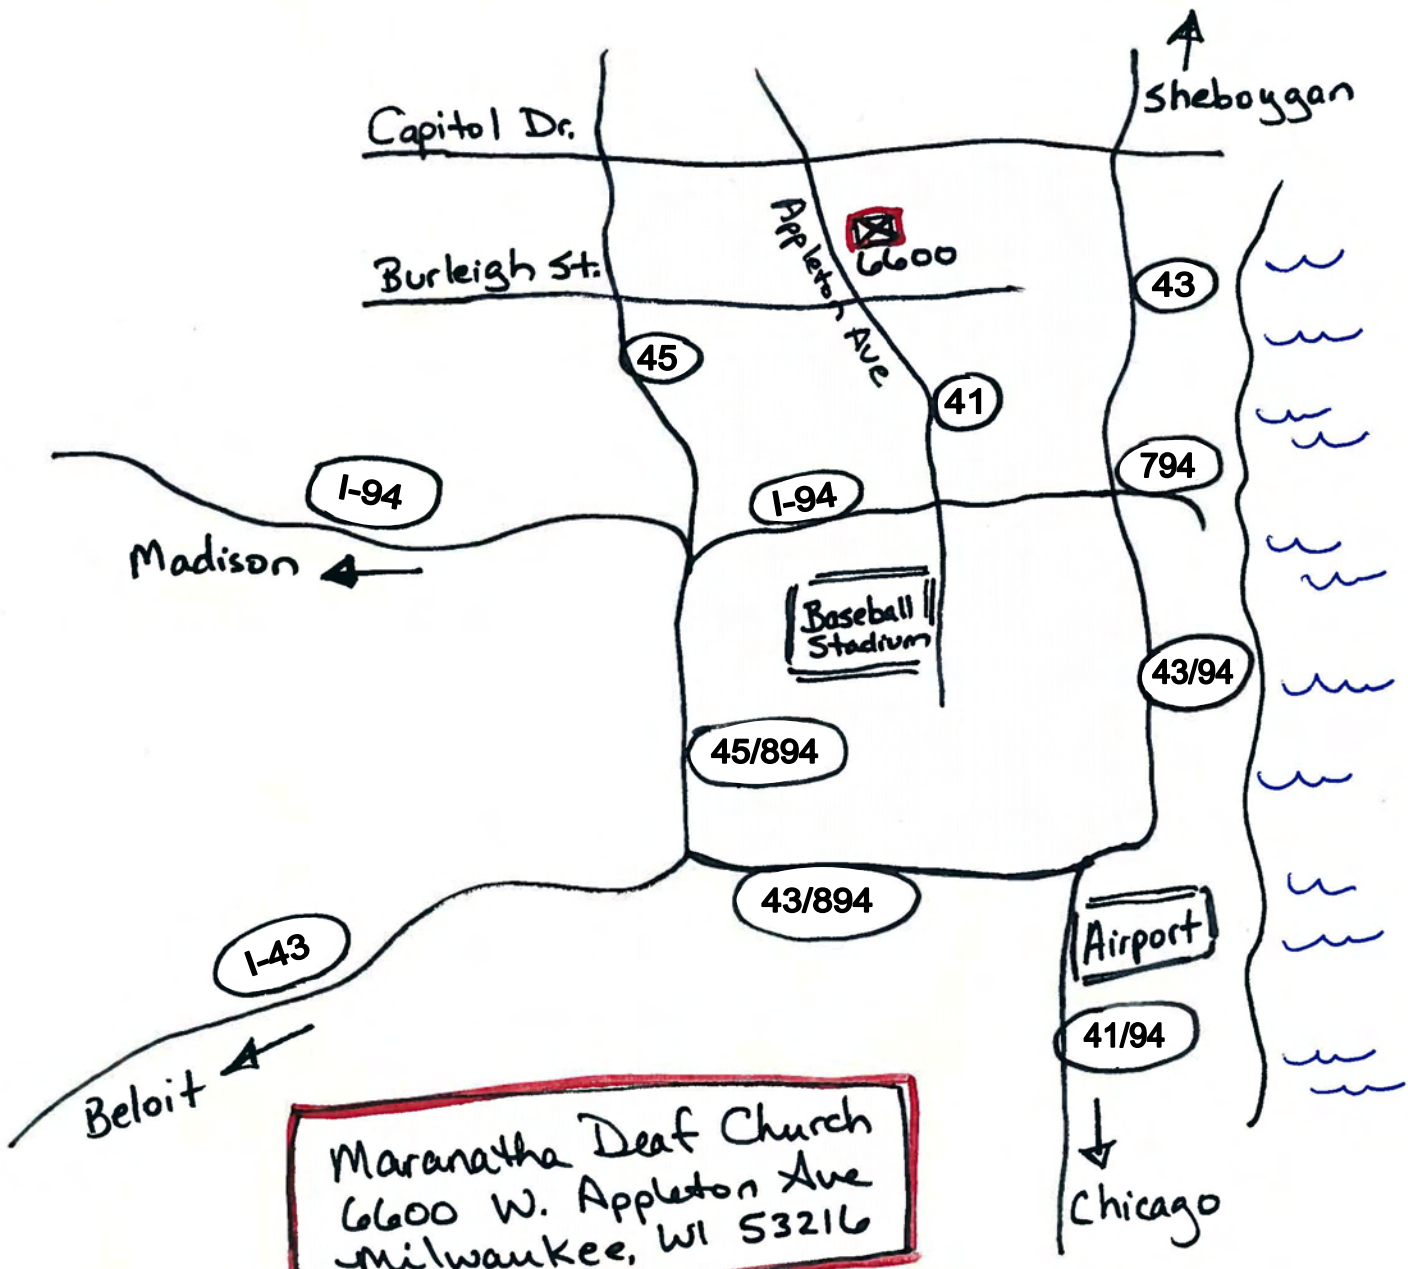 Sheboygan
Capitol Dr.
Appleton Ave
6600
Burleigh St.
43
45
41
794
I-94
I-94
Madison
Baseball
Stadium
43/94
45/894
43/894
I-43
Airport
41/94
Beloit
Chicago
Maranatha Deaf Church
6600 W. Appleton Ave
Milwaukee, WI 53216